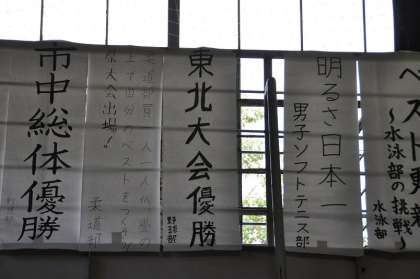 市中総体優勝
柔道部員一人一人が
県大会出場!!
柔道部
東北大会優勝
野球部
明るさ日本一
男子ソフトテニス部
ベスト更新
〜水泳部の挑戦〜
水泳部